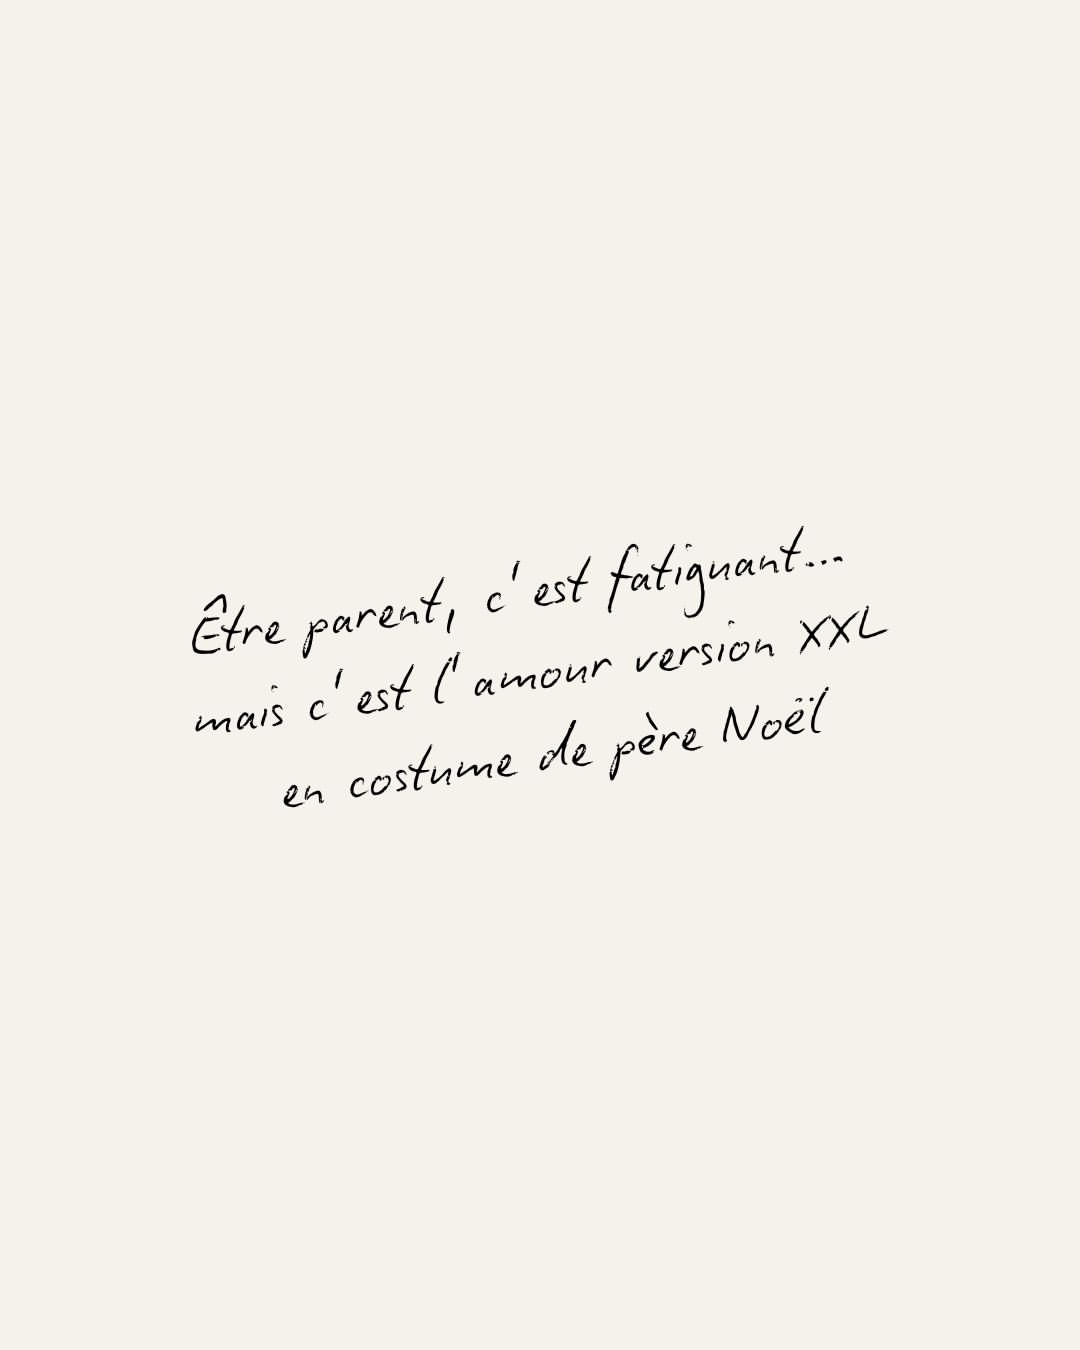 Être parent, c'est fatiguant...
mais c'est l'amour version XXL
en costume de père Noël